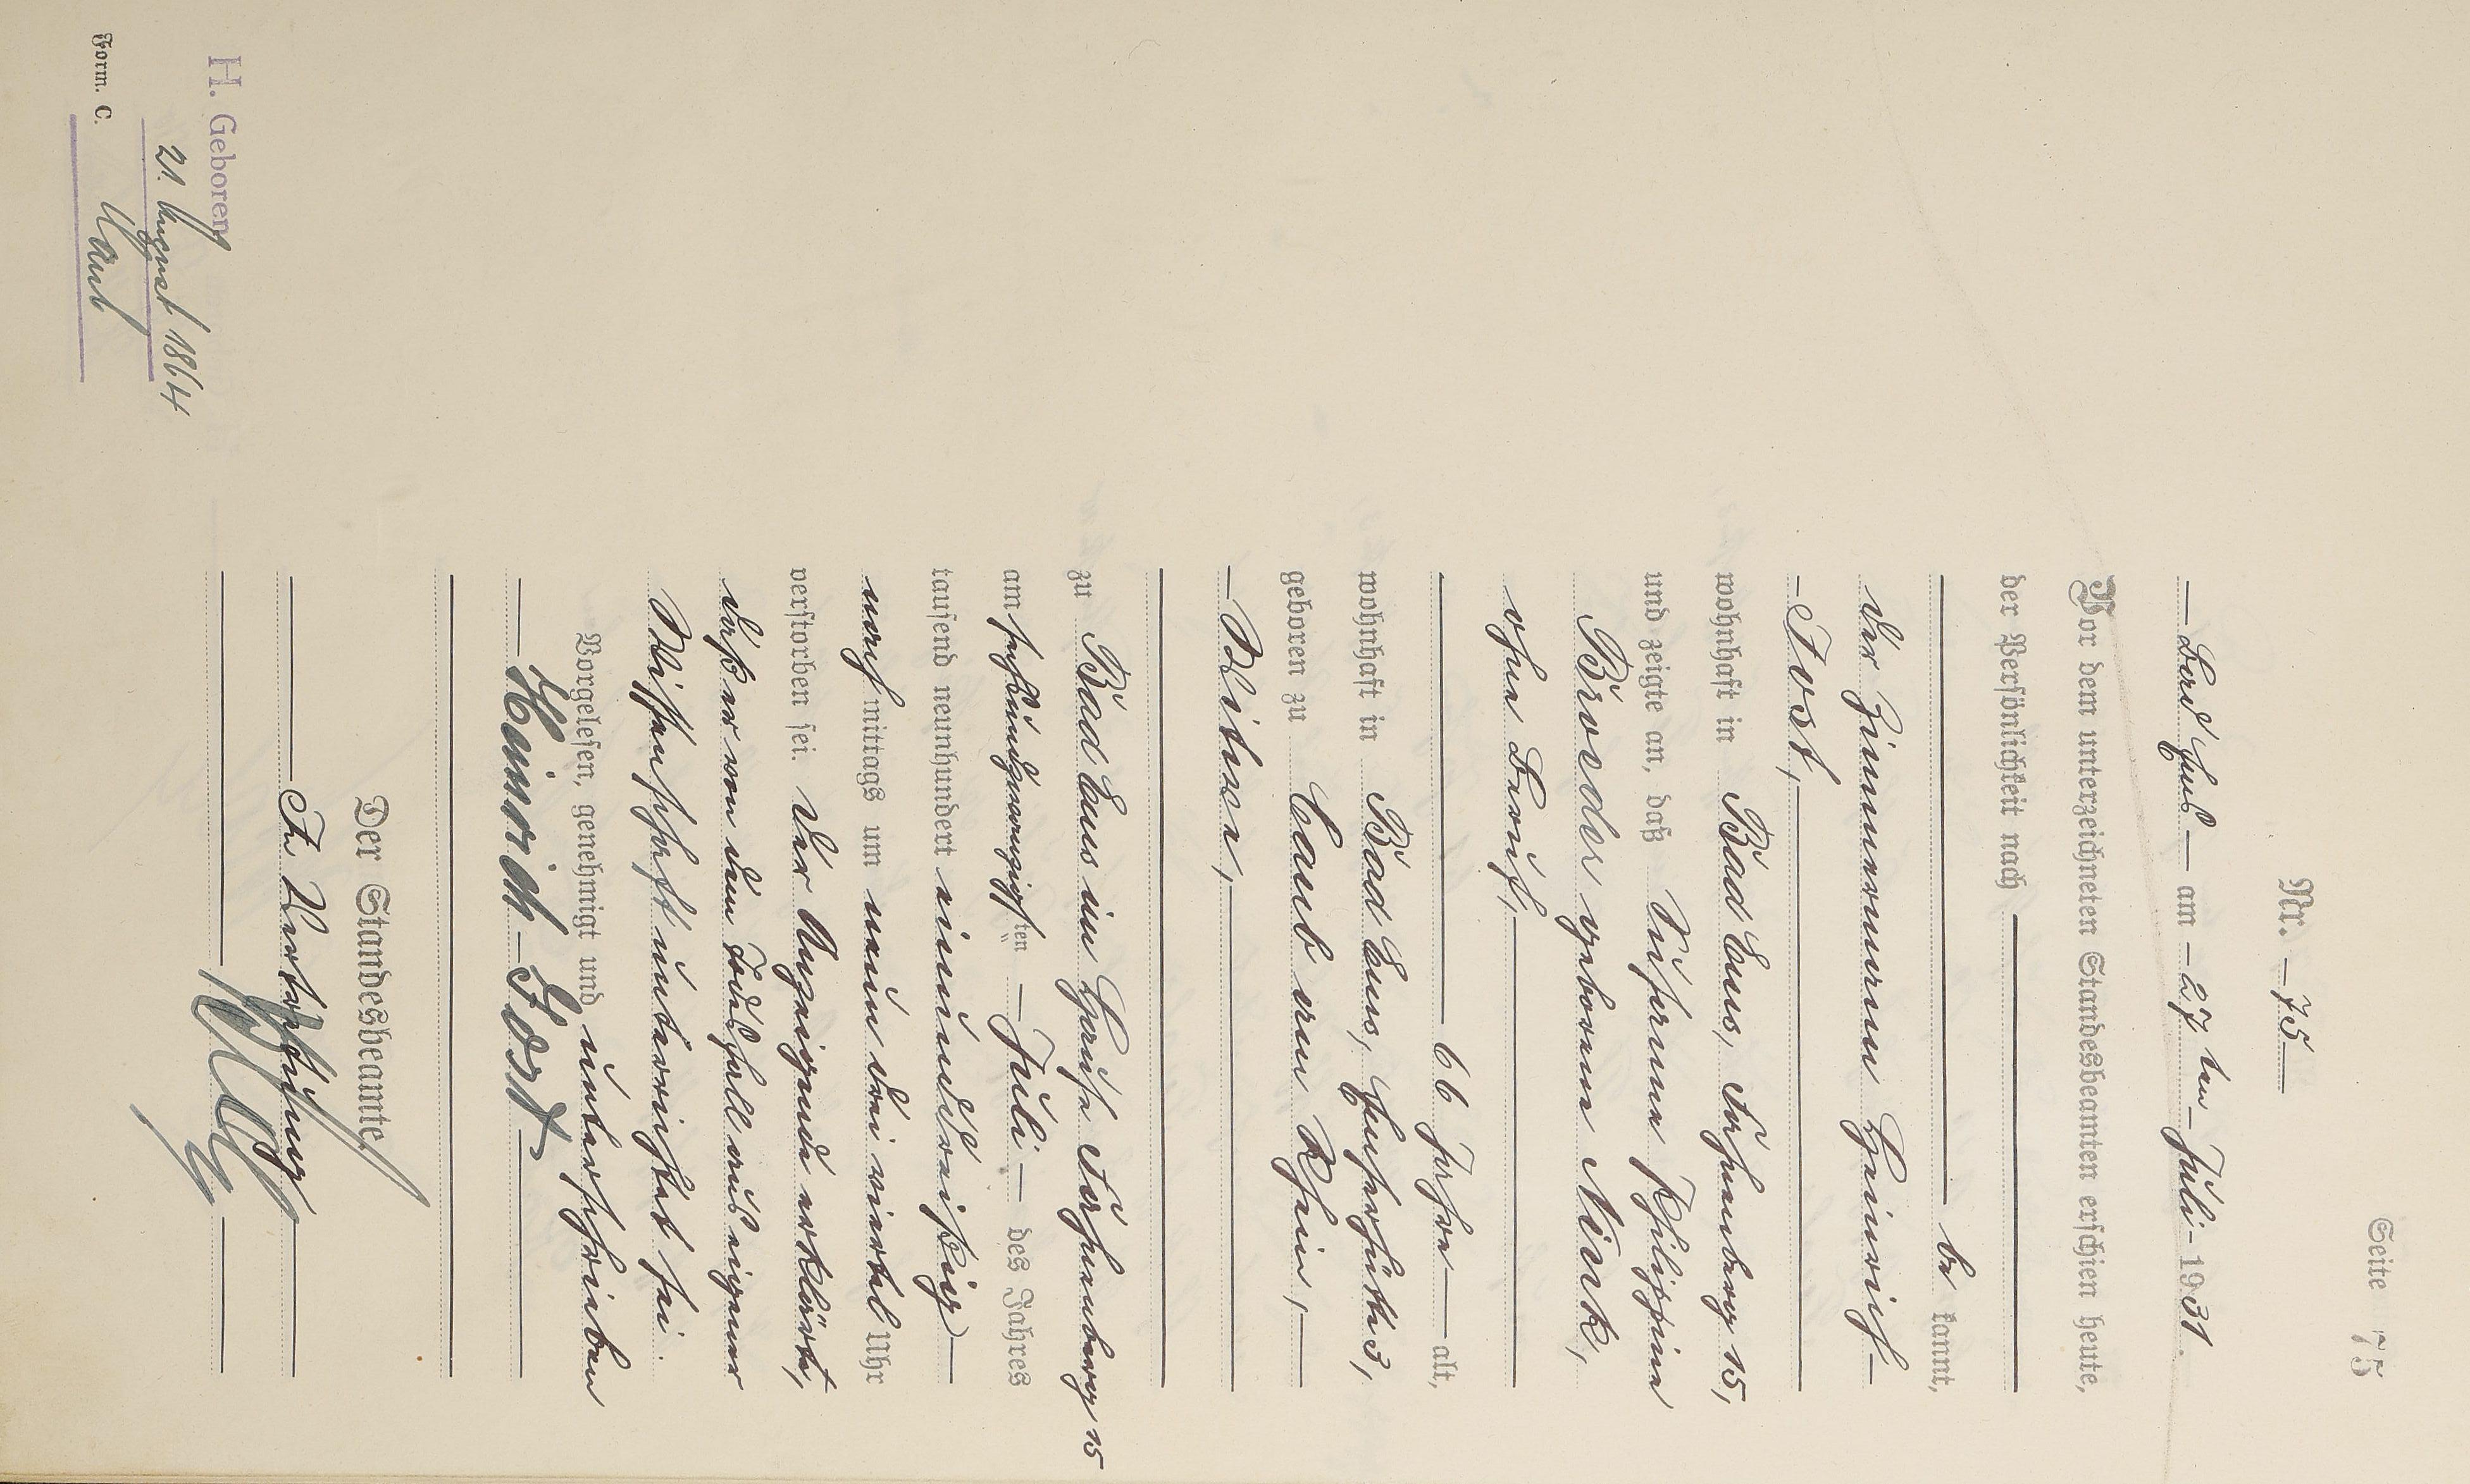 Seite 75
Nr. – 75 –
– Bad Ems – am – 27 ten – Juli – 1931.
Vor dem unterzeichneten Standesbeamten erschien heute,
der Persönlichkeit nach
be kannt,
der Zimmermann Heinrich –
– Jost, –
wohnhaft in Bad Ems, 15,
und zeigte an, daß Johanna Philippina
Broeder geborene Nink,
ohne Beruf, –
66 Jahre – alt,
wohnhaft in Bad Ems, 3,
geboren zu Caub am Rhein, –
– Witwe, –
zu Bad Ems im Hause 15
am sechsundzwanzigsten – Juli – des Jahres
tausend neunhundert einunddreißig –
nachmittags um neun drei viertel Uhr
verstorben sei. Der Anzeigende erklärte,
daß er von dem Todesfall aus eigener
Wissenschaft unterrichtet sei.
Vorgelesen, genehmigt und unterschrieben
Heinrich Jost
Der Standesbeamte
In Vertretung
H. Geboren
21. August 1864
Caub
Form. C.